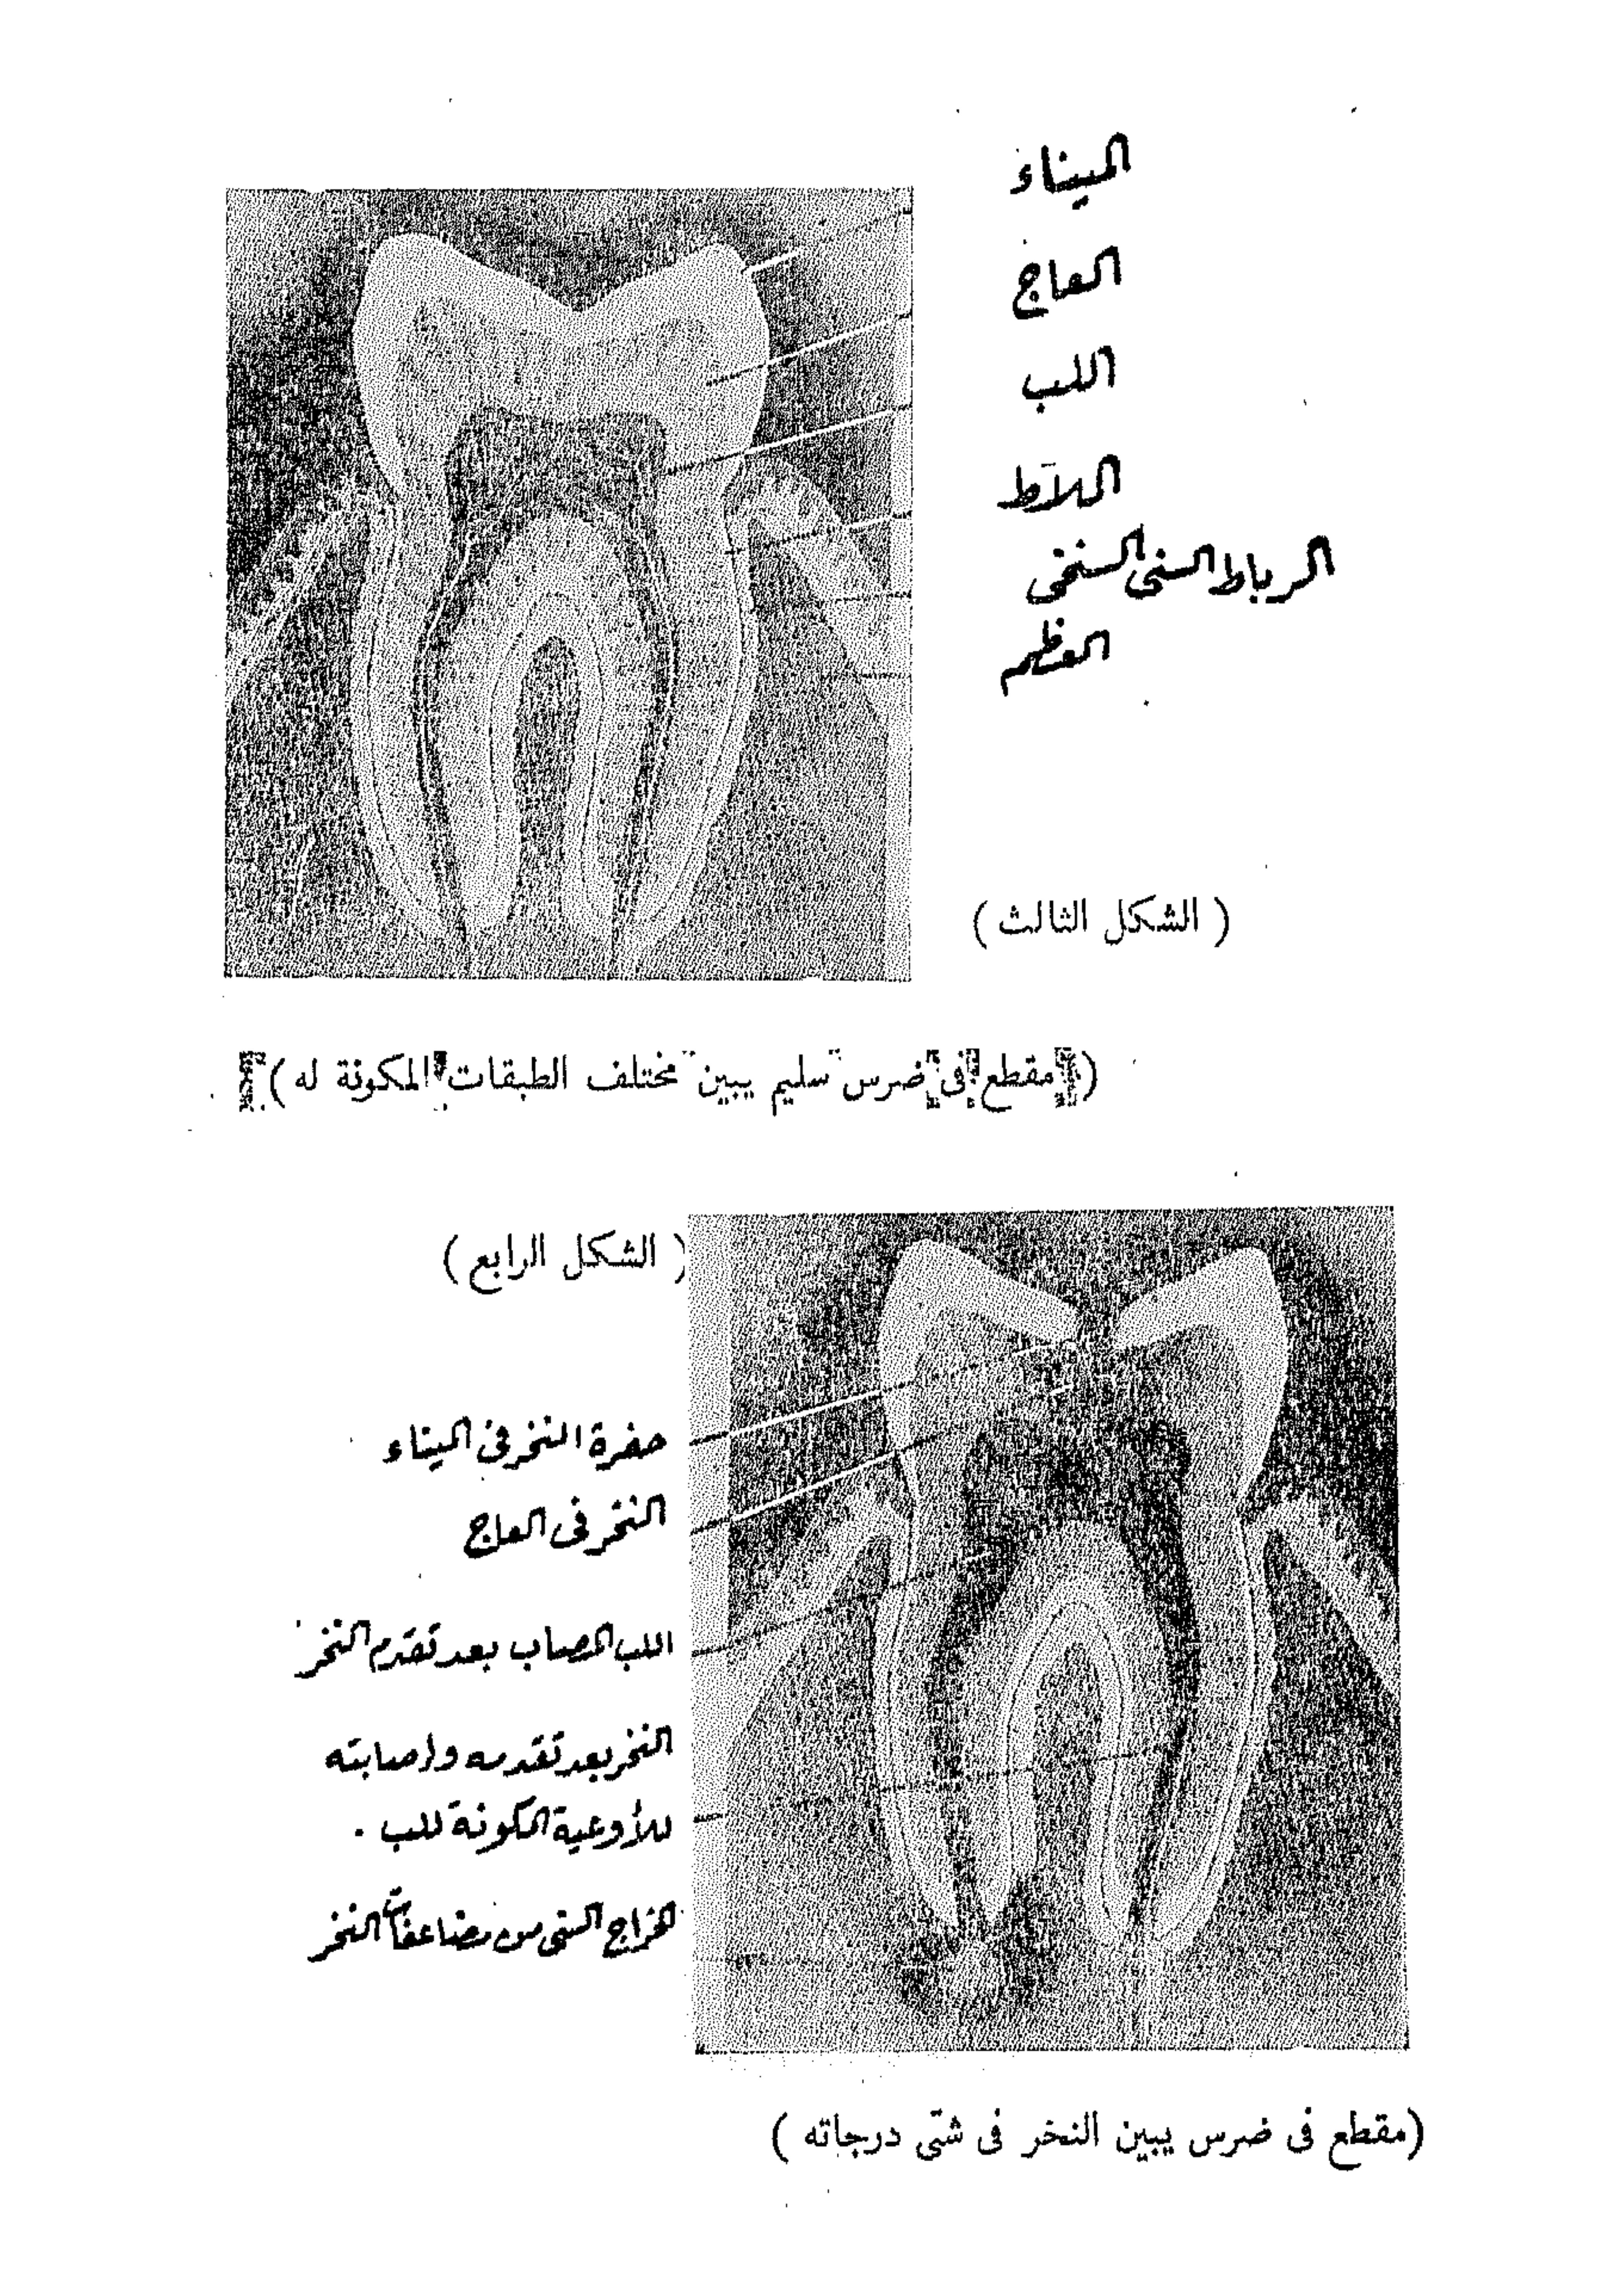 الميناء
العاج
اللب
الملاط
الرباط السنى السنخى
العظم
( الشكل الثالث )
( مقطع فى ضرس سليم يبين مختلف الطبقات المكونة له )
( الشكل الرابع )
حفرة النخر فى الميناء
النخر فى العاج
اللب المصاب بعد تقدم النخر
النخر بعد تقدمه وإصابته
للأوعية المكونة للب .
الخراج السنى من مضاعفات النخر
(مقطع فى ضرس يبين النخر فى شتّى درجاته )